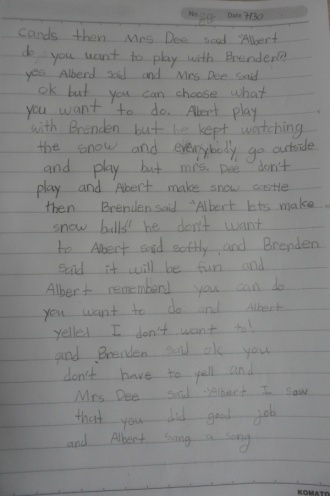 No. Date
cards then Mrs Dee said "Albert
do you want to play with Brenden?"
yes Alberd said and Mrs Dee said
ok but you can choose what
you want to do. Albert play
with Brenden but he kept watching
the snow and everybody go outside
and play but mrs. Dee don't
play and Albert make snow castle
then Brenden said "Albert lets make
snow balls" he don't want
to Albert said softly and Brenden
said it will be fun and
Albert rememberd you can do
you want to do and Albert
yelled I don't want to!
and Brenden said ok you
don't have to yell and
Mrs Dee said "Albert I saw
that you did good job
and Albert sang a song
KOMATO